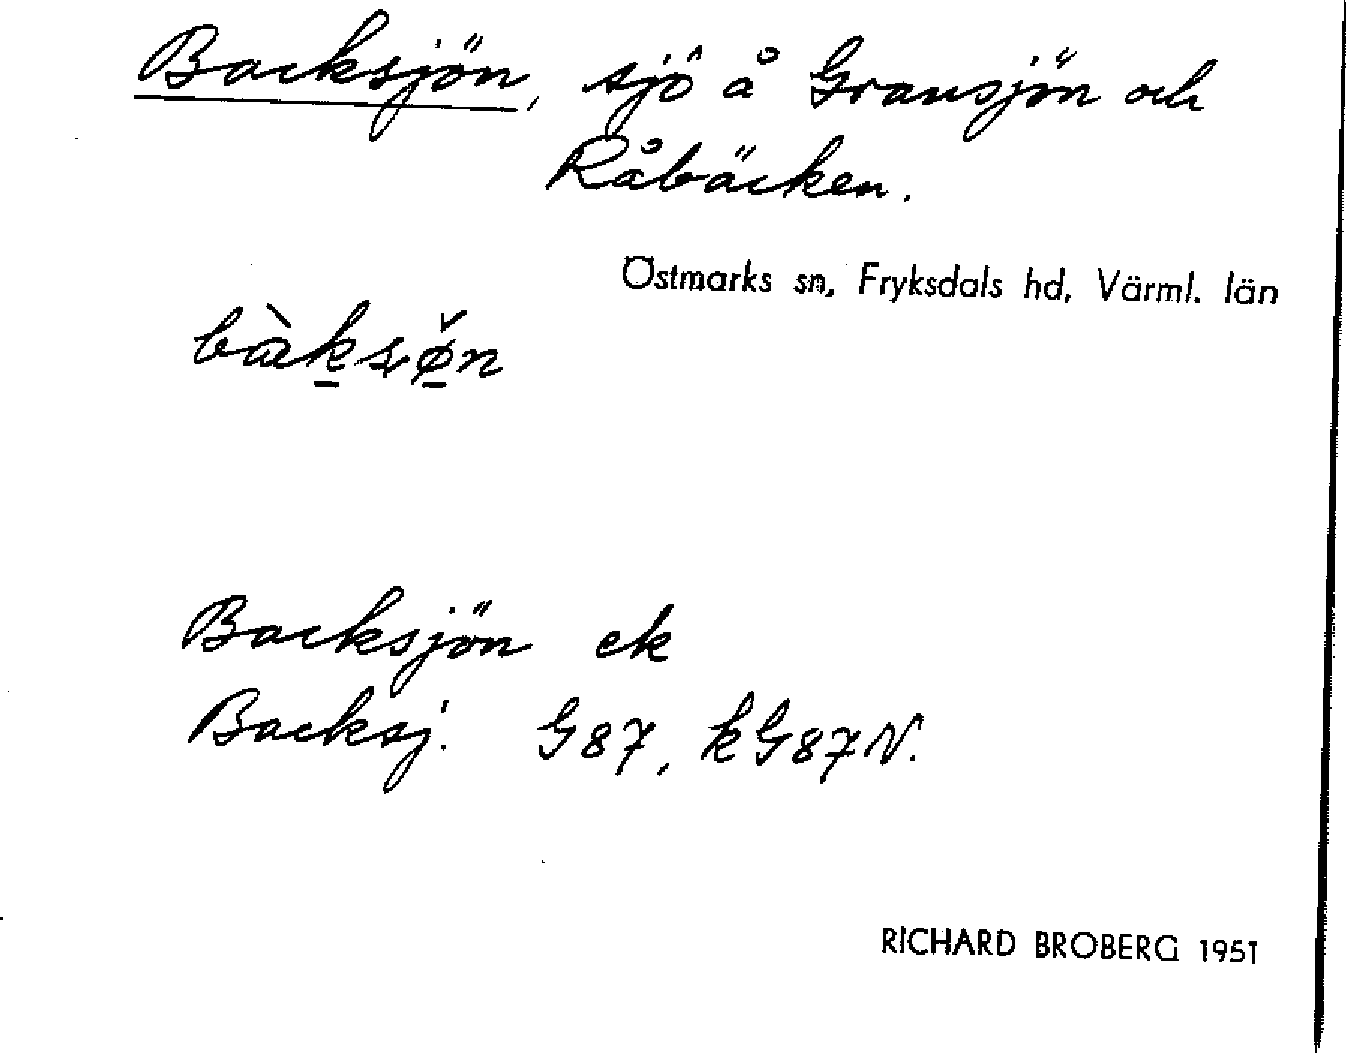 Backsjön, sjö å Gransjön och
Råbäcken.
Östmarks sn, Fryksdals hd, Värml. län
bàksø̌n
Backsjön ek
Backsj. G87, kG87N.
RICHARD BROBERG 1951